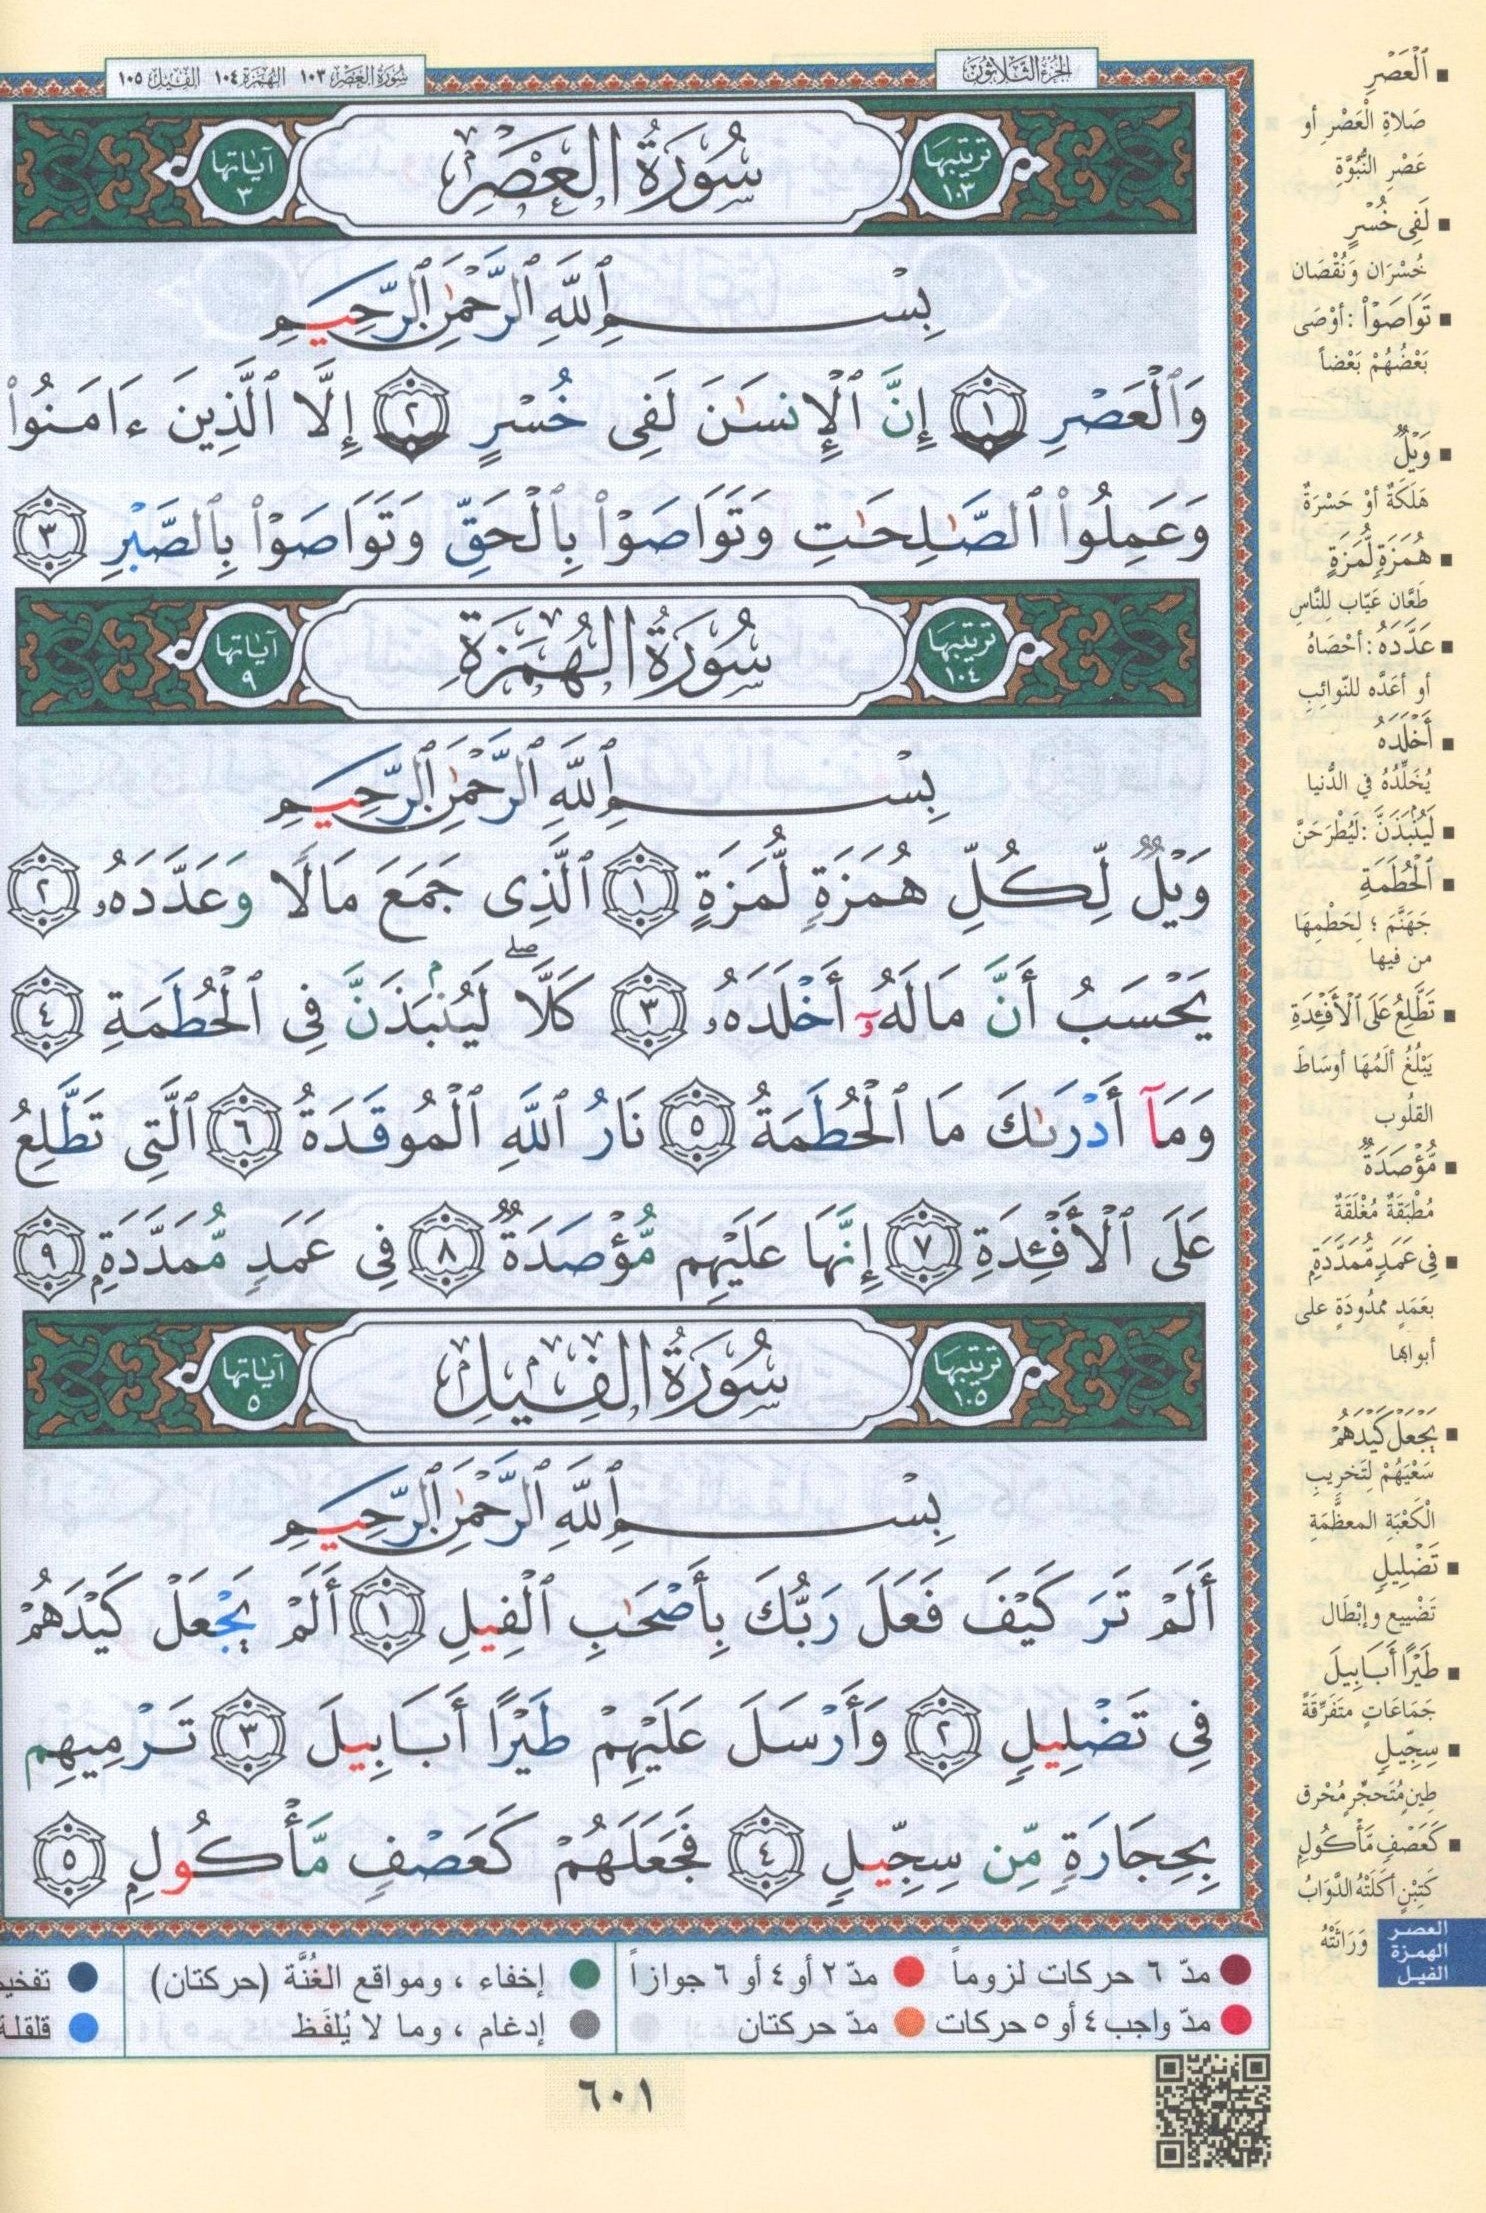 سُورَةُ العَصْر ١٠٣ الهُمَزَة ١٠٤ الفِيل ١٠٥
الجُزءُ الثَّلَاثُونَ
تَرتيبُها ١٠٣
سُورَةُ العَصْرِ
آيَاتها ٣
بِسْمِ ٱللَّهِ ٱلرَّحْمَٰنِ ٱلرَّحِيمِ
وَٱلْعَصْرِ ١ إِنَّ ٱلْإِنسَٰنَ لَفِى خُسْرٍ ٢ إِلَّا ٱلَّذِينَ ءَامَنُوا۟
وَعَمِلُوا۟ ٱلصَّٰلِحَٰتِ وَتَوَاصَوْا۟ بِٱلْحَقِّ وَتَوَاصَوْا۟ بِٱلصَّبْرِ ٣
تَرتيبُها ١٠٤
سُورَةُ الهُمَزَةِ
آيَاتها ٩
بِسْمِ ٱللَّهِ ٱلرَّحْمَٰنِ ٱلرَّحِيمِ
وَيْلٌ لِّكُلِّ هُمَزَةٍ لُّمَزَةٍ ١ ٱلَّذِى جَمَعَ مَالًا وَعَدَّدَهُۥ ٢
يَحْسَبُ أَنَّ مَالَهُۥٓ أَخْلَدَهُۥ ٣ كَلَّا ۖ لَيُنۢبَذَنَّ فِى ٱلْحُطَمَةِ ٤
وَمَآ أَدْرَىٰكَ مَا ٱلْحُطَمَةُ ٥ نَارُ ٱللَّهِ ٱلْمُوقَدَةُ ٦ ٱلَّتِى تَطَّلِعُ
عَلَى ٱلْأَفْـِٔدَةِ ٧ إِنَّهَا عَلَيْهِم مُّؤْصَدَةٌ ٨ فِى عَمَدٍ مُّمَدَّدَةٍۭ ٩
تَرتيبُها ١٠٥
سُورَةُ الفِيلِ
آيَاتها ٥
بِسْمِ ٱللَّهِ ٱلرَّحْمَٰنِ ٱلرَّحِيمِ
أَلَمْ تَرَ كَيْفَ فَعَلَ رَبُّكَ بِأَصْحَٰبِ ٱلْفِيلِ ١ أَلَمْ يَجْعَلْ كَيْدَهُمْ
فِى تَضْلِيلٍ ٢ وَأَرْسَلَ عَلَيْهِمْ طَيْرًا أَبَابِيلَ ٣ تَرْمِيهِم
بِحِجَارَةٍ مِّن سِجِّيلٍ ٤ فَجَعَلَهُمْ كَعَصْفٍ مَّأْكُولٍ ٥
ٱلْعَصْرِ
صَلاةِ الْعَصْرِ أو
عَصْرِ النُّبُوَّةِ
لَفِى خُسْرٍ
خُسْرَان وَنُقْصَان
تَوَاصَوْا۟ : أوْصَى
بَعْضُهُمْ بَعْضاً
وَيْلٌ
هَلَكَةٌ أوْ حَسْرَةٌ
هُمَزَةٍ لُّمَزَةٍ
طَعَّان عَيّاب لِلنَّاسِ
عَدَّدَهُ : أحْصَاهُ
أو أعَدَّه للنّوائِبِ
أَخْلَدَهُ
يُخَلِّدُهُ في الدُّنيا
لَيُنۢبَذَنَّ : لَيُطْرَحَنَّ
ٱلْحُطَمَةِ
جَهَنَّمَ ؛ لِحَطْمِهَا
من فيها
تَطَّلِعُ عَلَى ٱلْأَفْـِٔدَةِ
يَبْلُغُ ألَمُهَا أوسَاطَ
القلُوب
مُّؤْصَدَةٌ
مُطْبَقَةٌ مُغْلَقَةٌ
فِى عَمَدٍ مُّمَدَّدَةٍۭ
بعَمَدٍ ممدُودَةٍ على
أبوابها
يَجْعَلْ كَيْدَهُمْ
سَعْيَهُمْ لِتَخرِيبِ
الْكَعْبَةِ المعظَّمَةِ
تَضْلِيلٍ
تَضْييع وإبْطَال
طَيْرًا أَبَابِيلَ
جَمَاعَاتٍ متَفَرِّقَةً
سِجِّيلٍ
طِينٍ مُتَحجِّرٍ مُحْرق
كَعَصْفٍ مَّأْكُولٍ
كَتِبْنٍ أكَلَتْهُ الدَّوَابُ
وَرَاثَتْهُ
العصر
الهمزة
الفيل
مدّ ٦ حركات لزوماً مدّ ٢ أو ٤ أو ٦ جوازاً إخفاء ، ومواقع الغُنَّة (حركتان)
مدّ واجب ٤ أو ٥ حركات مدّ حركتان إدغام ، وما لا يُلفَظ قلقلة
٦٠١